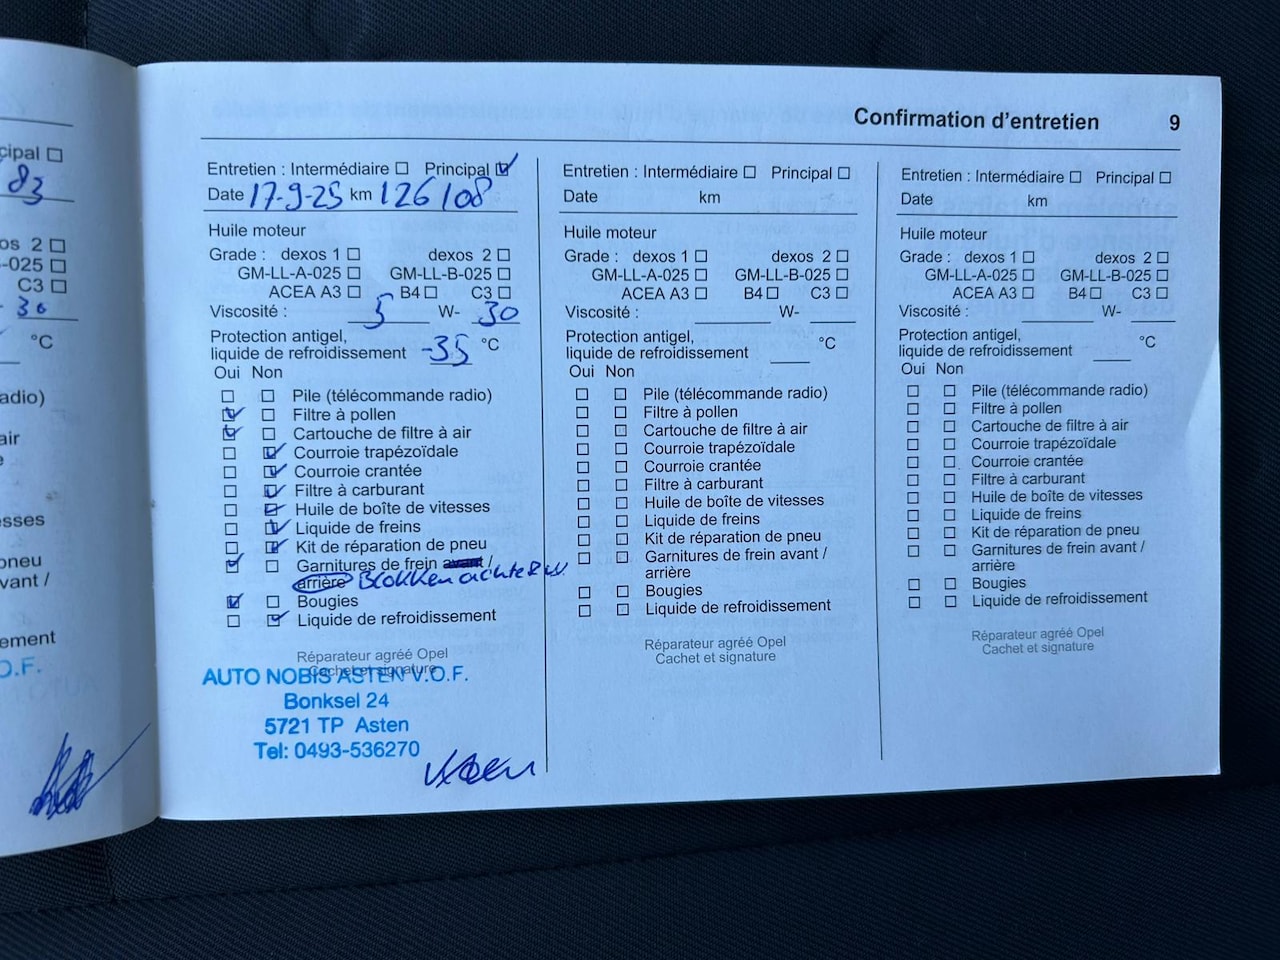 cipal
83
os 2
-025
C3
30
°C
adio)
air
e
sses
oneu
vant /
ement
O.F.
Confirmation d'entretien 9
Entretien : Intermédiaire Principal
Date 17-9-25 km 126108
Huile moteur
Grade : dexos 1 dexos 2
GM-LL-A-025 GM-LL-B-025
ACEA A3 B4 C3
Viscosité : 5 W- 30
Protection antigel,
liquide de refroidissement -35 °C
Oui Non
Pile (télécommande radio)
Filtre à pollen
Cartouche de filtre à air
Courroie trapézoïdale
Courroie crantée
Filtre à carburant
Huile de boîte de vitesses
Liquide de freins
Kit de réparation de pneu
Garnitures de frein avant /
arrière Blokken achter
Bougies
Liquide de refroidissement
Réparateur agréé Opel
Cachet et signature
AUTO NOBIS ASTEN V.O.F.
Bonksel 24
5721 TP Asten
Tel: 0493-536270
Entretien : Intermédiaire Principal
Date km
Huile moteur
Grade : dexos 1 dexos 2
GM-LL-A-025 GM-LL-B-025
ACEA A3 B4 C3
Viscosité : W-
Protection antigel,
liquide de refroidissement °C
Oui Non
Pile (télécommande radio)
Filtre à pollen
Cartouche de filtre à air
Courroie trapézoïdale
Courroie crantée
Filtre à carburant
Huile de boîte de vitesses
Liquide de freins
Kit de réparation de pneu
Garnitures de frein avant /
arrière
Bougies
Liquide de refroidissement
Réparateur agréé Opel
Cachet et signature
Entretien : Intermédiaire Principal
Date km
Huile moteur
Grade : dexos 1 dexos 2
GM-LL-A-025 GM-LL-B-025
ACEA A3 B4 C3
Viscosité : W-
Protection antigel,
liquide de refroidissement °C
Oui Non
Pile (télécommande radio)
Filtre à pollen
Cartouche de filtre à air
Courroie trapézoïdale
Courroie crantée
Filtre à carburant
Huile de boîte de vitesses
Liquide de freins
Kit de réparation de pneu
Garnitures de frein avant /
arrière
Bougies
Liquide de refroidissement
Réparateur agréé Opel
Cachet et signature